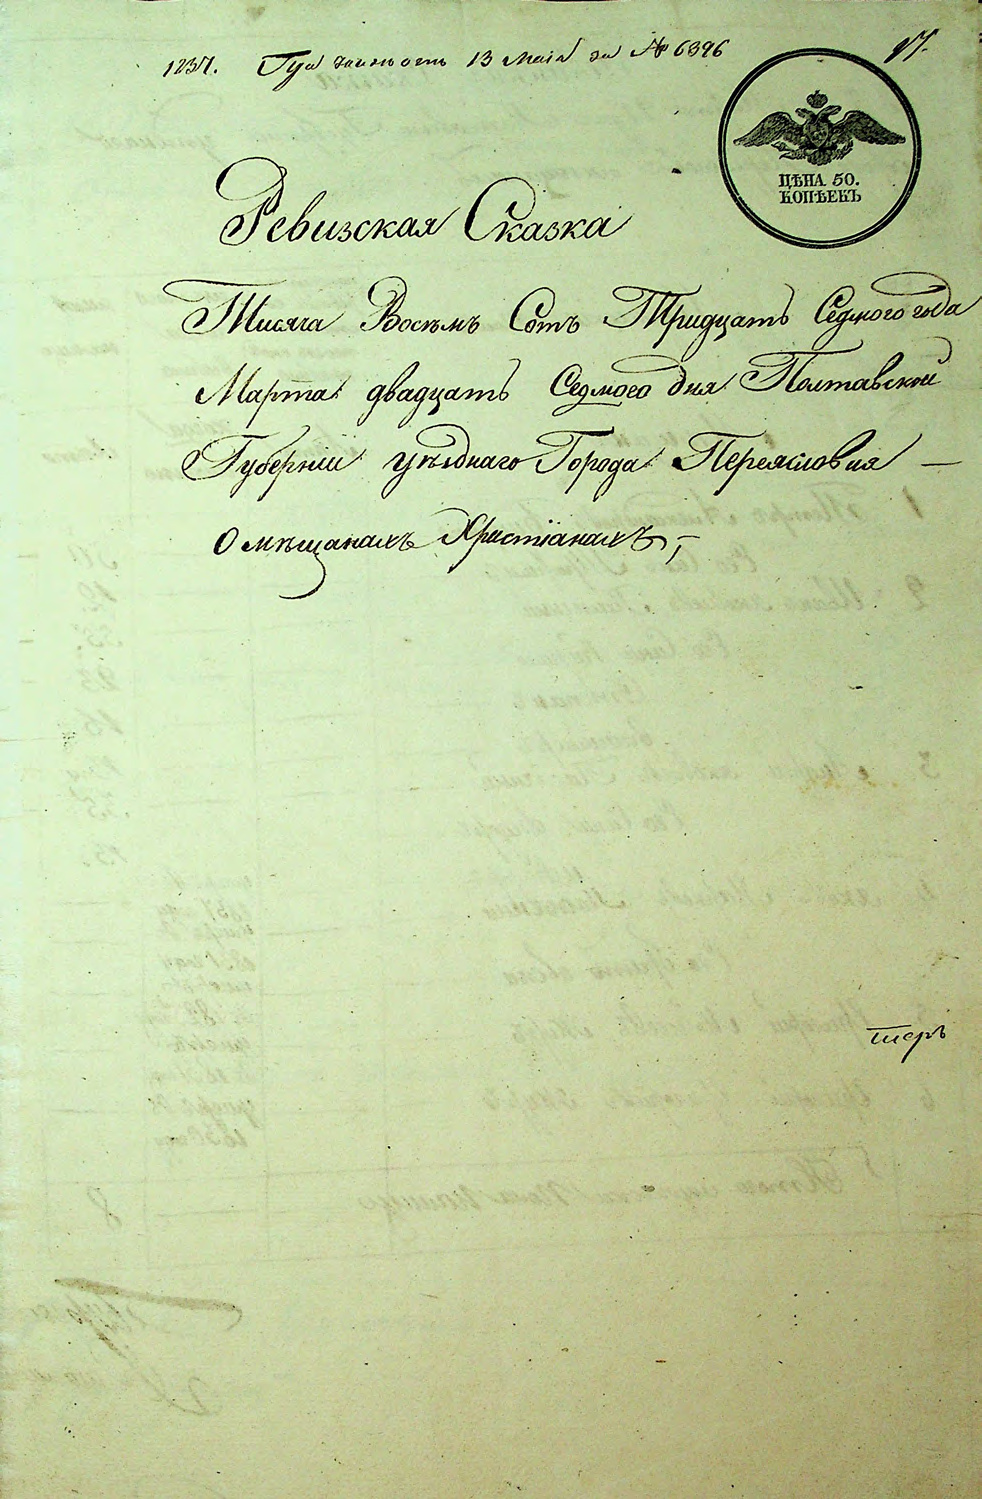 1237. 13 Маія за № 6396
17.
ЦѢНА 50.
КОПѢЕКЪ
Ревизская Сказка
Тисяча Восѣмъ Сотъ Тридцать Седмого года
Марта двадцать Седмого дня Полтавской
Губерніи уѣзднаго Города Переяславля —
О мѣщанахъ Христіанахъ,—